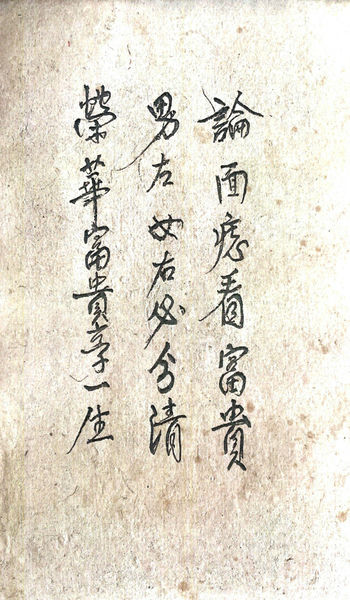 論面痣看富貴
男左女右必分清
榮華富貴享一生